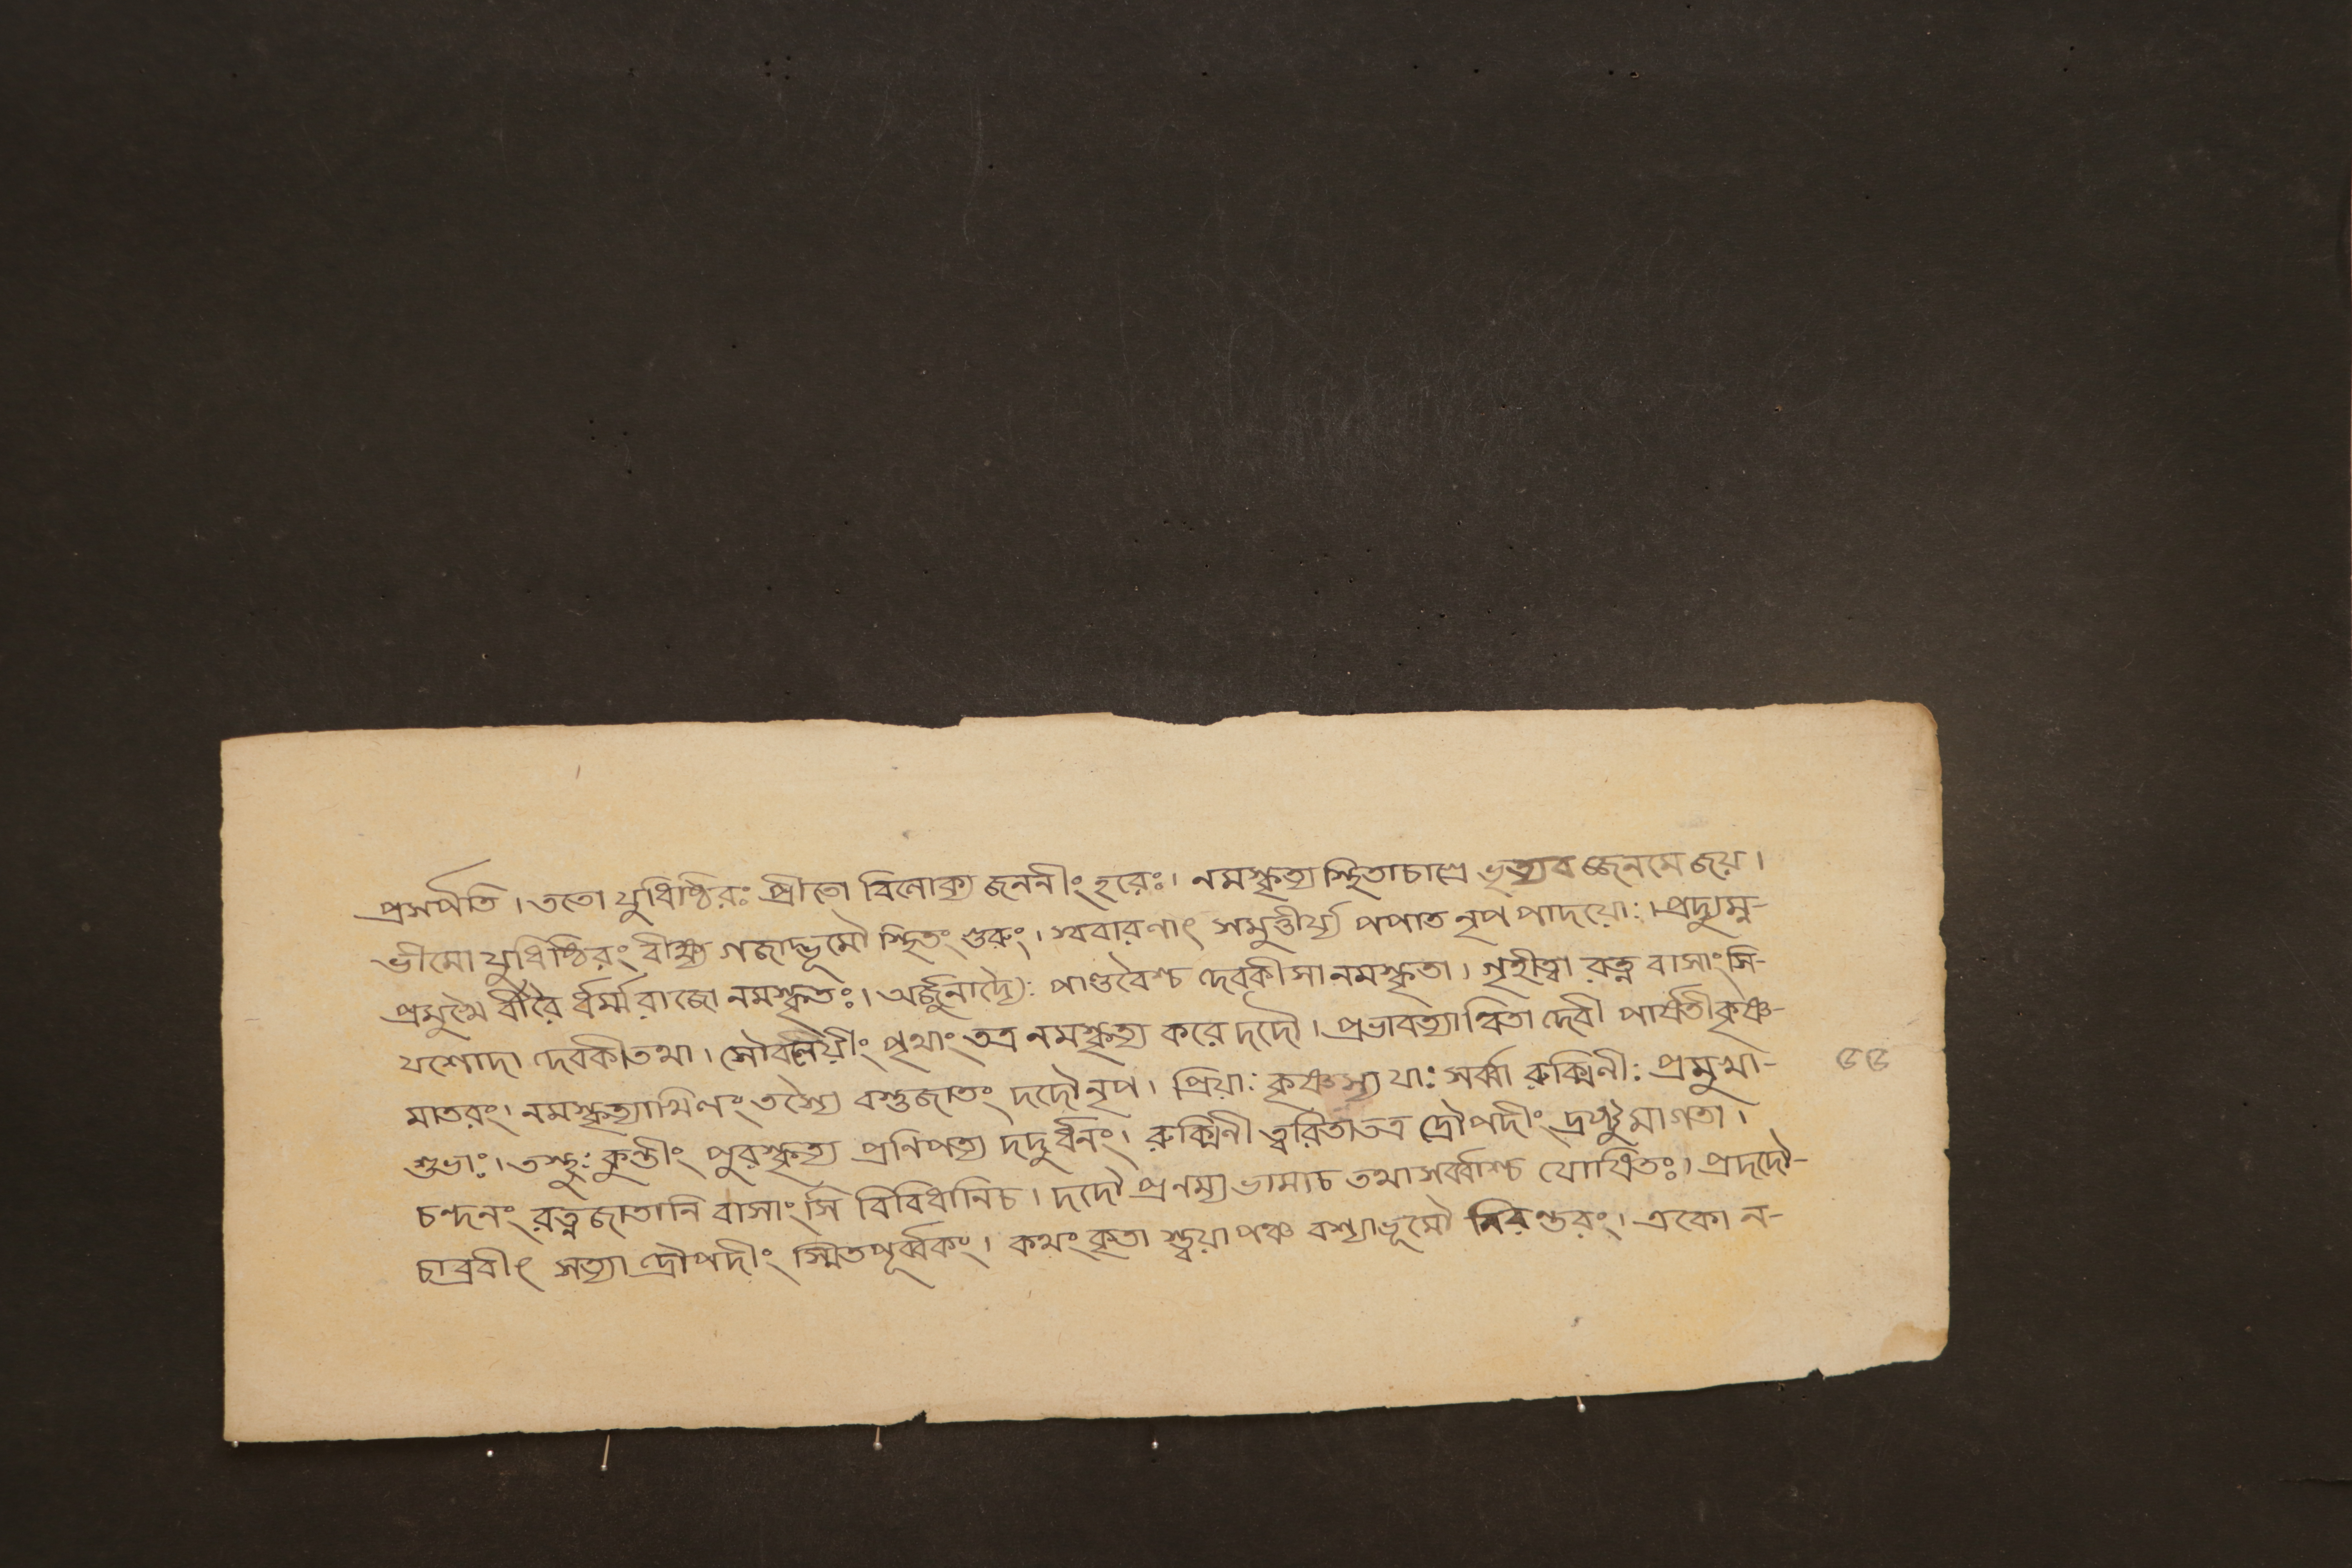 প্রসর্পতি । ততো যুধিষ্ঠিরঃ প্রীতো বিলোক্য জননীং হরেঃ । নমস্কৃত্য স্থিতাচাগ্রে ভৃত্যব জ্জনমে জয় ।
ভীমো যুধিষ্ঠিরং বীক্ষ্য গজাদ্ভূমৌ স্থিতং গুরুং । স্ববারণাৎ সমুত্তীর্য্য পপাত নৃপ পাদয়োঃ । প্রদ্যুম্ন-
প্রমুখৈ র্বীরৈ র্ধর্ম্মরাজো নমস্কৃতঃ । অর্জ্জুনাদ্যৈঃ পাণ্ডবৈশ্চ দেবকী সা নমস্কৃতা । গৃহীত্বা রত্ন বাসাংসি-
যশোদা দেবকী তথা । সৌবলেয়ীং পৃথাং তত্র নমস্কৃত্য করে দদৌ । প্রভাবত্যান্বিতা দেবী পার্ষতী কৃষ্ণ-
মাতরং । নমস্কৃত্যাখিলং তস্যৈ বস্তুজাতং দদৌ নৃপ । প্রিয়াঃ কৃষ্ণস্য যাঃ সর্ব্বা রুক্মিনীঃ প্রমুখা-
শুভাঃ । তস্থুঃ কুন্তীং পুরস্কৃত্য প্রনিপত্য দদুর্ধনং । রুক্মিনী ত্বরিতা তত্র দ্রৌপদীং দ্রষ্টুমাগতা ।
চন্দনং রত্নজাতানি বাসাংসি বিবিধানিচ । দদৌ প্রনম্য ভামাচ তথা সর্ব্বাশ্চ যোষিতঃ । প্রদদৌ-
চাব্রবীৎ সত্যা দ্রৌপদীং স্মিতপূর্ব্বকং । কথং কৃতা স্ত্বয়া পঞ্চ বশ্যা ভূমৌ নিরন্তরং । একো ন-
৫৫